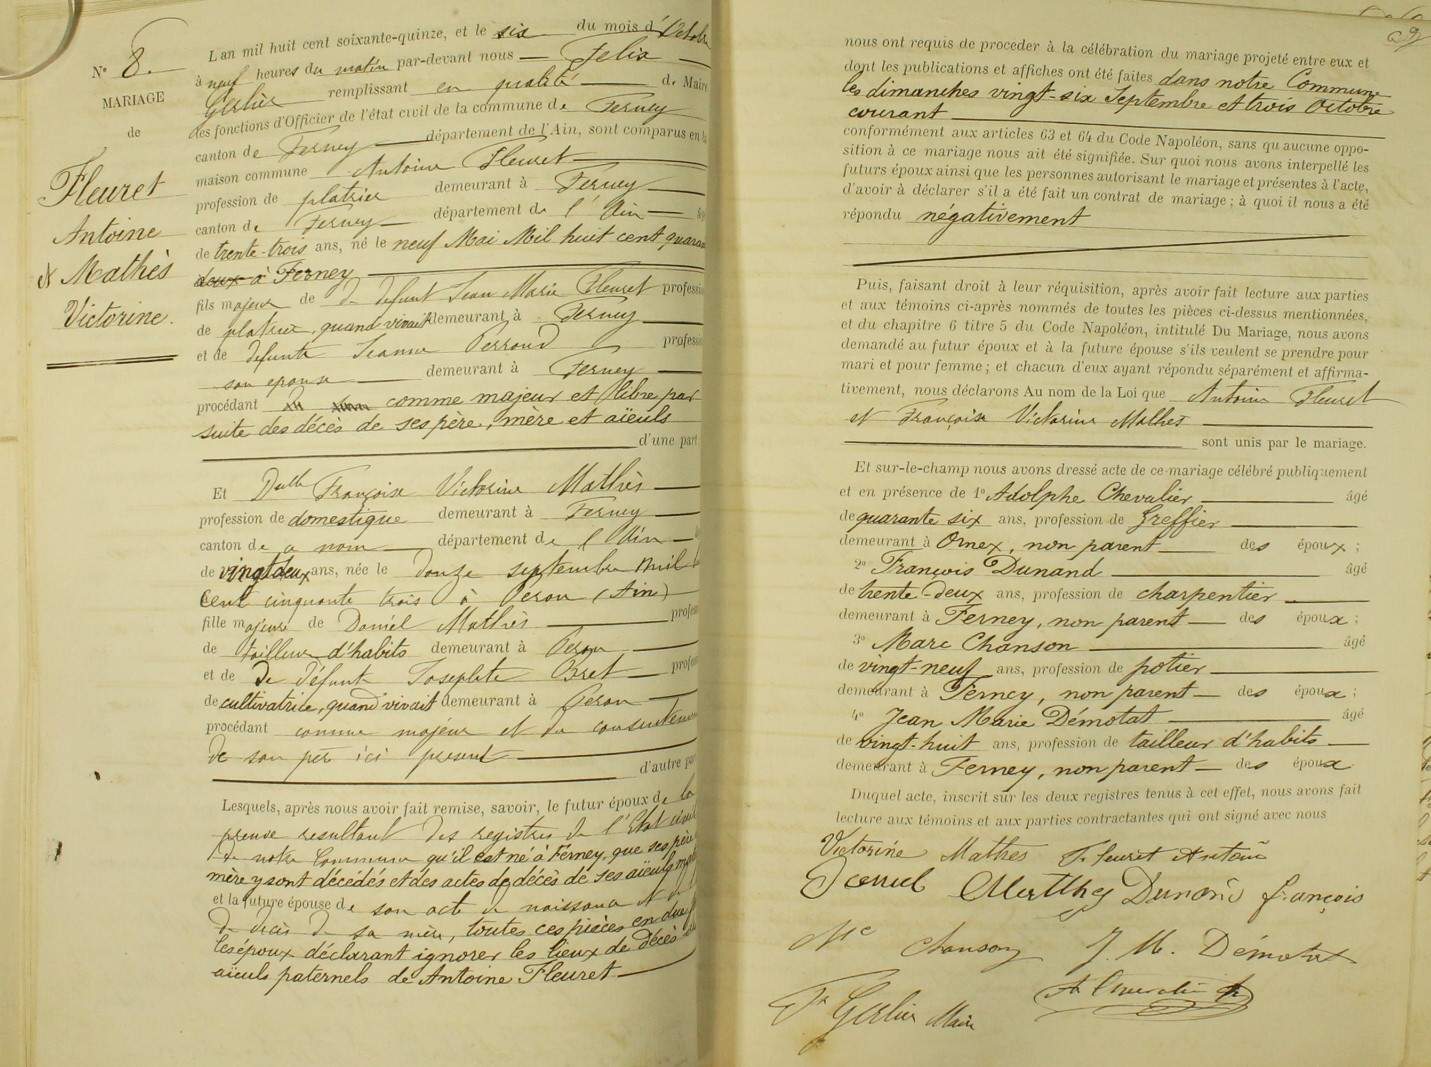 Nº 8.
MARIAGE
de
Fleuret
Antoine
& Mathès
Victorine.
L'an mil huit cent soixante-quinze, et le six du mois d'Octobre
à neuf heures du matin par-devant nous Felix
Gerlier remplissant en qualité de Maire
des fonctions d'Officier de l'état civil de la commune de Ferney
canton de Ferney département de l'Ain, sont comparus en la
maison commune Antoine Fleuret
profession de platrier demeurant à Ferney
canton de Ferney département de l'Ain
de trente-trois ans, né le neuf Mai Mil huit cent quaran
deux à Ferney
fils majeur de défunt Jean Marie Fleuret profession
de platrier, quand vivait demeurant à Ferney
et de défunte Jeanne Perroud profession
son epouse demeurant à Ferney
procédant comme majeur et libre par
suite des décès de ses père, mère et aïeuls
d'une part
Et Dlle Françoise Victorine Mathès
profession de domestique demeurant à Ferney
canton de ce nom département de l'Ain
de vingt deux ans, née le douze septembre mil
cent cinquante trois à Peron (Ain)
fille majeure de Daniel Mathès profession
de tailleur d'habits demeurant à Peron
et de défunt Josephte Bret profession
de cultivatrice, quand vivait demeurant à Peron
procédant comme majeur et du consentement
de son père ici présent
d'autre part
Lesquels, après nous avoir fait remise, savoir, le futur époux de la
preuve resultant des registres de l'Etat civil
de notre Commune qu'il est né à Ferney, que ses père
mère y sont décédés et des actes de décès de ses aïeuls
et la future épouse de son acte de naissance et
de décès de sa mère, toutes ces pièces en due
les époux déclarant ignorer les lieux de décès
aïeuls paternels de Antoine Fleuret
nous ont requis de proceder à la célébration du mariage projeté entre eux et
dont les publications et affiches ont été faites dans notre Commune
les dimanches vingt-six Septembre et trois Octobre
courant
conformément aux articles 63 et 64 du Code Napoléon, sans qu'aucune oppo-
sition à ce mariage nous ait été signifiée. Sur quoi nous avons interpellé les
futurs époux ainsi que les personnes autorisant le mariage et présentes à l'acte,
d'avoir à déclarer s'il a été fait un contrat de mariage ; à quoi il nous a été
répondu négativement
Puis, faisant droit à leur réquisition, après avoir fait lecture aux parties
et aux témoins ci-après nommés de toutes les pièces ci-dessus mentionnées,
et du chapitre 6 titre 5 du Code Napoléon, intitulé Du Mariage, nous avons
demandé au futur époux et à la future épouse s'ils veulent se prendre pour
mari et pour femme ; et chacun d'eux ayant répondu séparément et affirma-
tivement, nous déclarons Au nom de la Loi que Antoine Fleuret
et Françoise Victorine Mathès
sont unis par le mariage.
Et sur-le-champ nous avons dressé acte de ce mariage célébré publiquement
et en présence de 1º Adolphe Chevalier âgé
de quarante six ans, profession de Greffier
demeurant à Ornex, non parent des époux ;
2º François Dunand âgé
de trente-deux ans, profession de charpentier
demeurant à Ferney, non parent des époux ;
3º Marc Chanson âgé
de vingt-neuf ans, profession de potier
demeurant à Ferney, non parent des époux ;
4º Jean Marie Démotat âgé
de vingt-huit ans, profession de tailleur d'habits
demeurant à Ferney, non parent des époux
Duquel acte, inscrit sur les deux registres tenus à cet effet, nous avons fait
lecture aux témoins et aux parties contractantes qui ont signé avec nous
Victorine Mathes Fleuret Antoine
Dunand françois
Mc Chanson J. M. Démotat
Fx Gerlier Maire